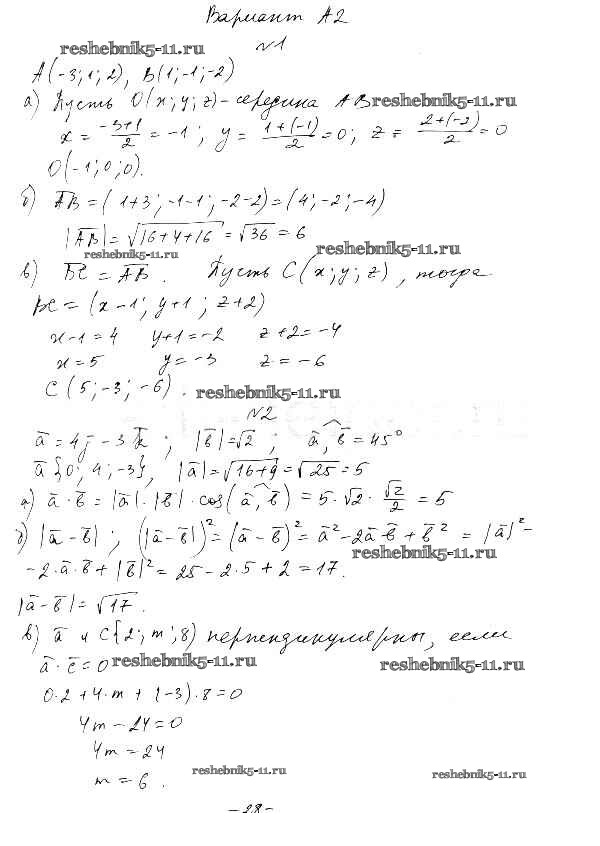 Вариант А2
reshebnik5-11.ru
№1
A(-3; 1; 2), B(1; -1; -2)
а) Пусть O(x; y; z) - середина AB reshebnik5-11.ru
x = \frac{-3+1}{2} = -1; y = \frac{1+(-1)}{2} = 0; z = \frac{2+(-2)}{2} = 0
O(-1; 0; 0).
б) \overline{AB} = (1+3; -1-1; -2-2) = (4; -2; -4)
|\overline{AB}| = \sqrt{16+4+16} = \sqrt{36} = 6
reshebnik5-11.ru reshebnik5-11.ru
в) \overline{BC} = \overline{AB}. Пусть C(x; y; z), тогда
BC = (x-1; y+1; z+2)
x-1=4 y+1=-2 z+2=-4
x=5 y=-3 z=-6
C(5; -3; -6). reshebnik5-11.ru
№2
\overline{a} = 4j - 3\overline{k}; |\overline{b}| = \sqrt{2}; \widehat{\overline{a}, \overline{b}} = 45°
\overline{a}{0; 4; -3}, |\overline{a}| = \sqrt{16+9} = \sqrt{25} = 5
а) \overline{a} · \overline{b} = |\overline{a}| · |\overline{b}| · cos(\widehat{\overline{a}, \overline{b}}) = 5 · \sqrt{2} · \frac{\sqrt{2}}{2} = 5
б) |\overline{a} - \overline{b}|; (|\overline{a} - \overline{b}|)² = (\overline{a} - \overline{b})² = \overline{a}² - 2\overline{a}·\overline{b} + \overline{b}² = |\overline{a}|² -
reshebnik5-11.ru
- 2·\overline{a}·\overline{b} + |\overline{b}|² = 25 - 2·5 + 2 = 17.
|\overline{a} - \overline{b}| = \sqrt{17}.
в) \overline{a} и C{2; m; 8} перпендикулярны, если
\overline{a} · \overline{c} = 0 reshebnik5-11.ru reshebnik5-11.ru
0·2 + 4·m + (-3)·8 = 0
4m - 24 = 0
4m = 24
m = 6. reshebnik5-11.ru reshebnik5-11.ru
- 28 -